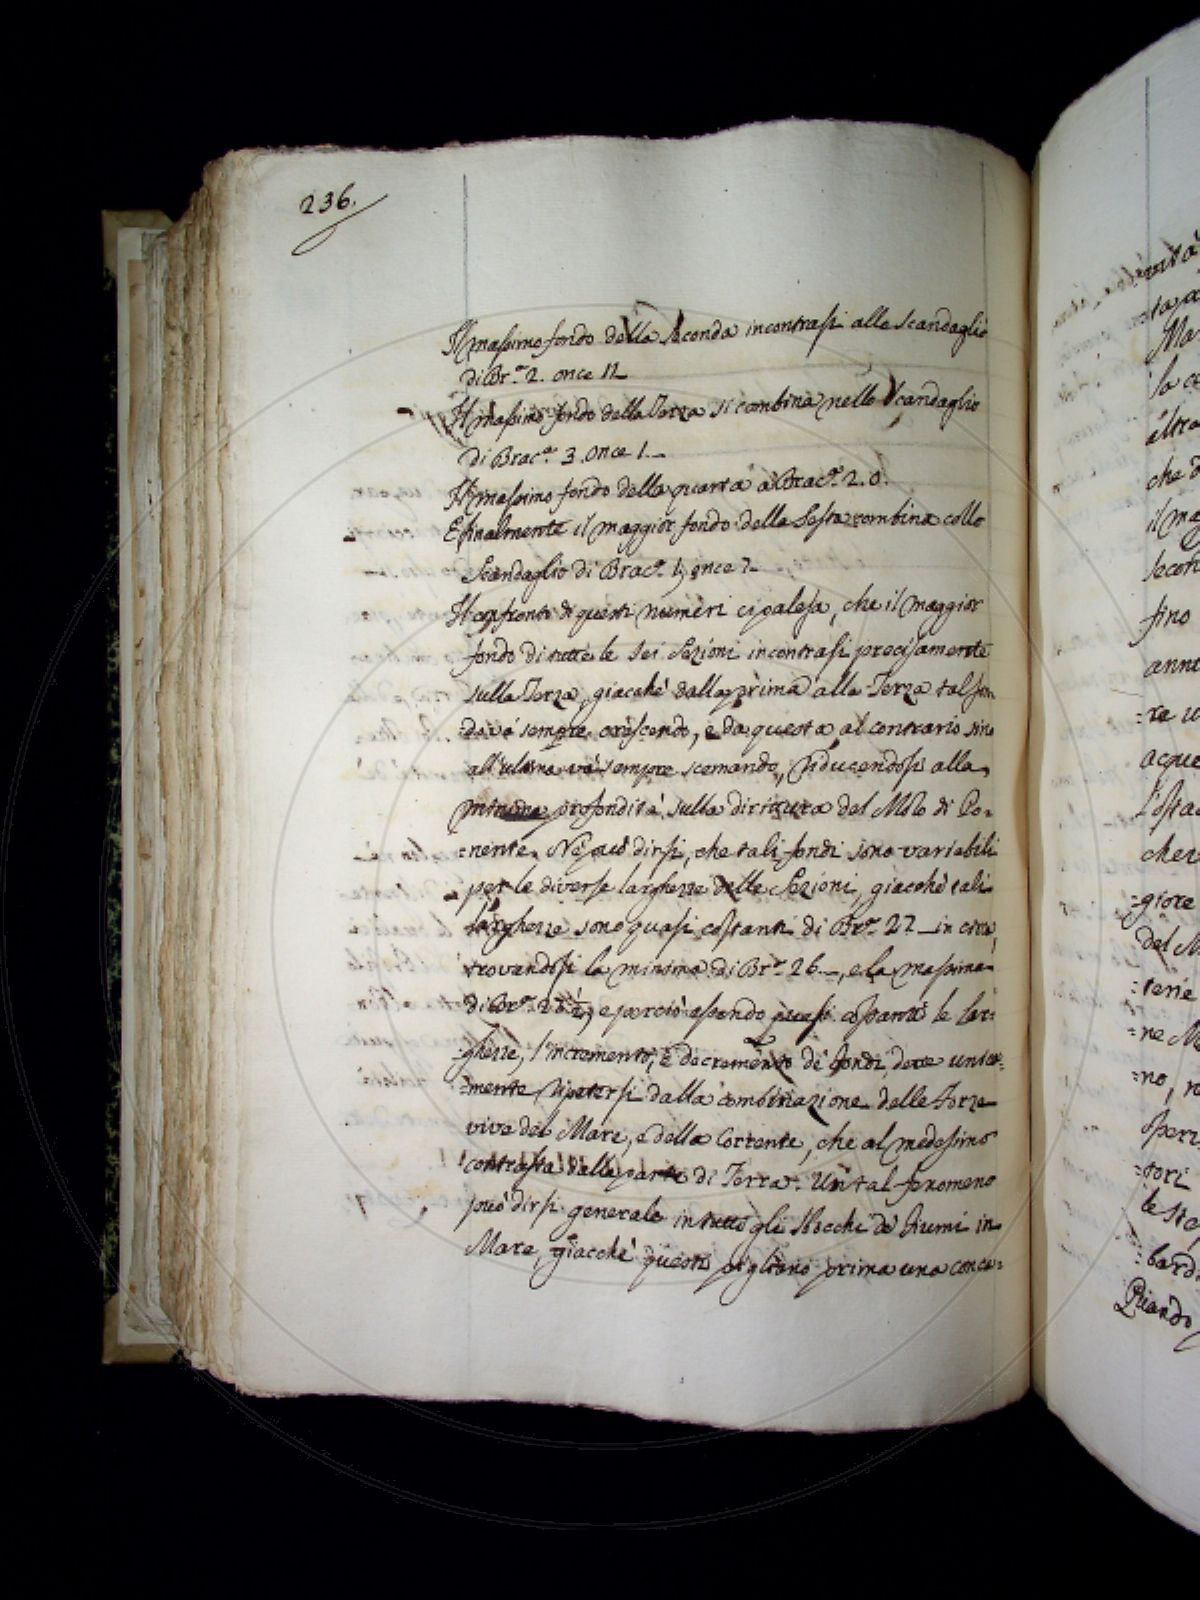 236.
Il massimo fondo della seconda incontrasi allo scandaglio
di Br.ª 2. once 11
Il massimo fondo della Terza si combina nello Scandaglio
di Brac.ª 3. once 1.
Il massimo fondo della quarta a Brac.ª 2. 0.
E finalmente il maggior fondo della Sesta combina collo
Scandaglio di Brac.ª 1, once 7
Il confronto di questi numeri ci palesa, che il maggior
fondo di tutte le sei Sezioni incontrasi precisamente
sulla Terza, giacchè dalla prima alla Terza tal fon:
:do và sempre crescendo, e da questa al contrario sino
all'ultima và sempre scemando, riducendosi alla
minima profondità sulla dirittura del Molo di Po:
:nente. Nè può dirsi, che tali fondi sono variabili
per le diverse larghezze delle Sezioni, giacchè tali
larghezze sono quasi costanti di Br.ª 27 in circa,
trovandosi la minima di Br.ª 26, e la massima
di Br.ª 28½, e perciò essendo quasi costanti le lar:
:ghezze, l'incremento, e decremento de' fondi deve unica:
:mente ripetersi dalla combinazione delle Forze
vive del Mare, e della Corrente, che al medesimo
contrasta dalla parte di Terra. Un tal fenomeno
può dirsi generale in tutti gli Sbocchi de' Fiumi in
Mare, giacchè questi pigliano prima una conca:
ta
Ma
la
altra
che
il mag
fino
:re
acque
:giore
del M
:ne Me
:no,
:tori
:bard